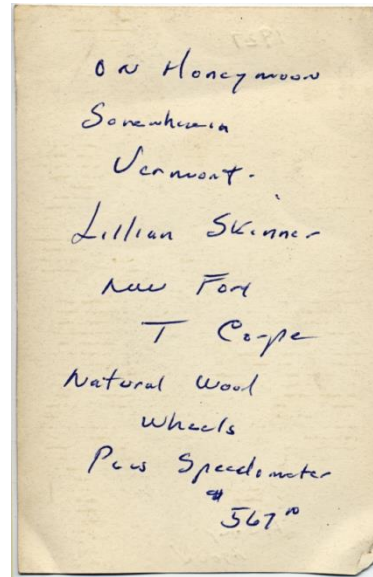 ON Honeymoon
Somewhere in
Vermont.
Lillian Skinner
New Ford
T Coupe
Natural Wood
Wheels
Plus Speedometer
$567